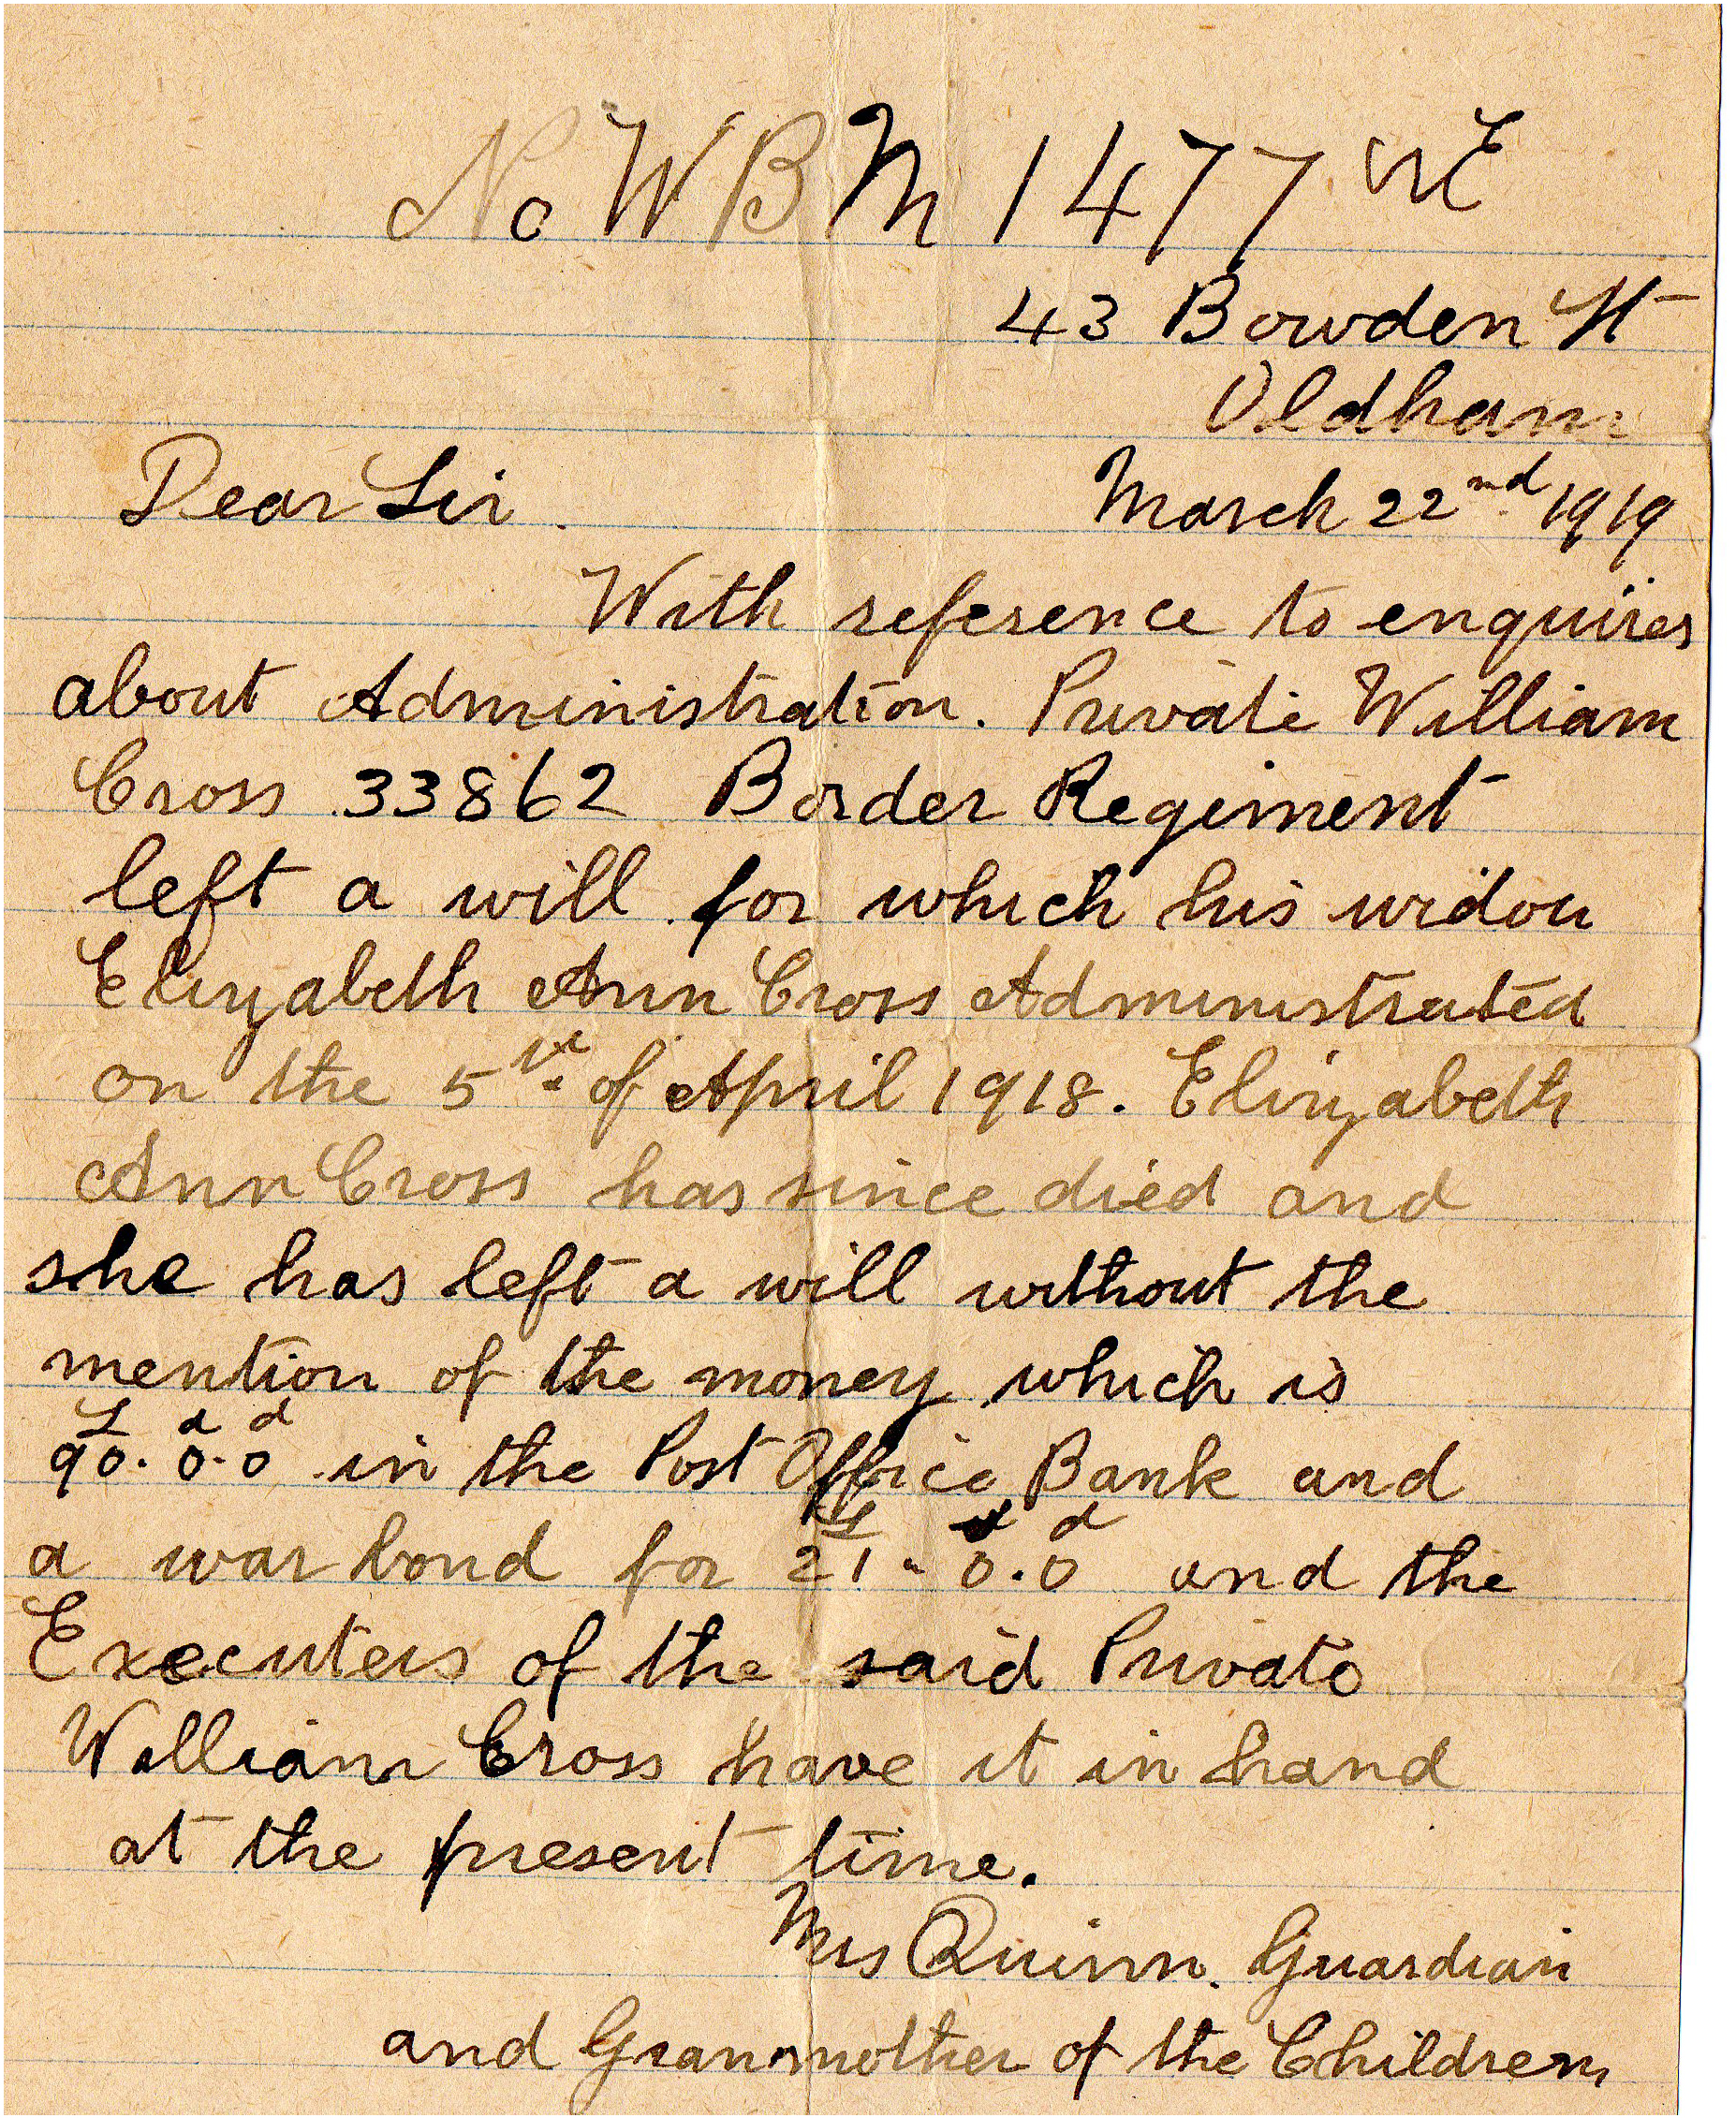 No WBM 1477 WE
43 Bowden St
Oldham
Dear Sir. March 22nd 1919
With reference to enquires
about Administration. Private William
Cross 33862 Border Regiment
left a will for which his widow
Elizabeth Ann Cross Administrated
on the 5th of April 1918. Elizabeth
Ann Cross has since died and
she has left a will without the
mention of the money which is
£ s d
90. 0. 0 in the Post Office Bank and
£ s d
a war bond for 21. 0. 0 and the
Executers of the said Private
William Cross have it in hand
at the present time.
Mrs Quinn. Guardian
and Granmother of the Children